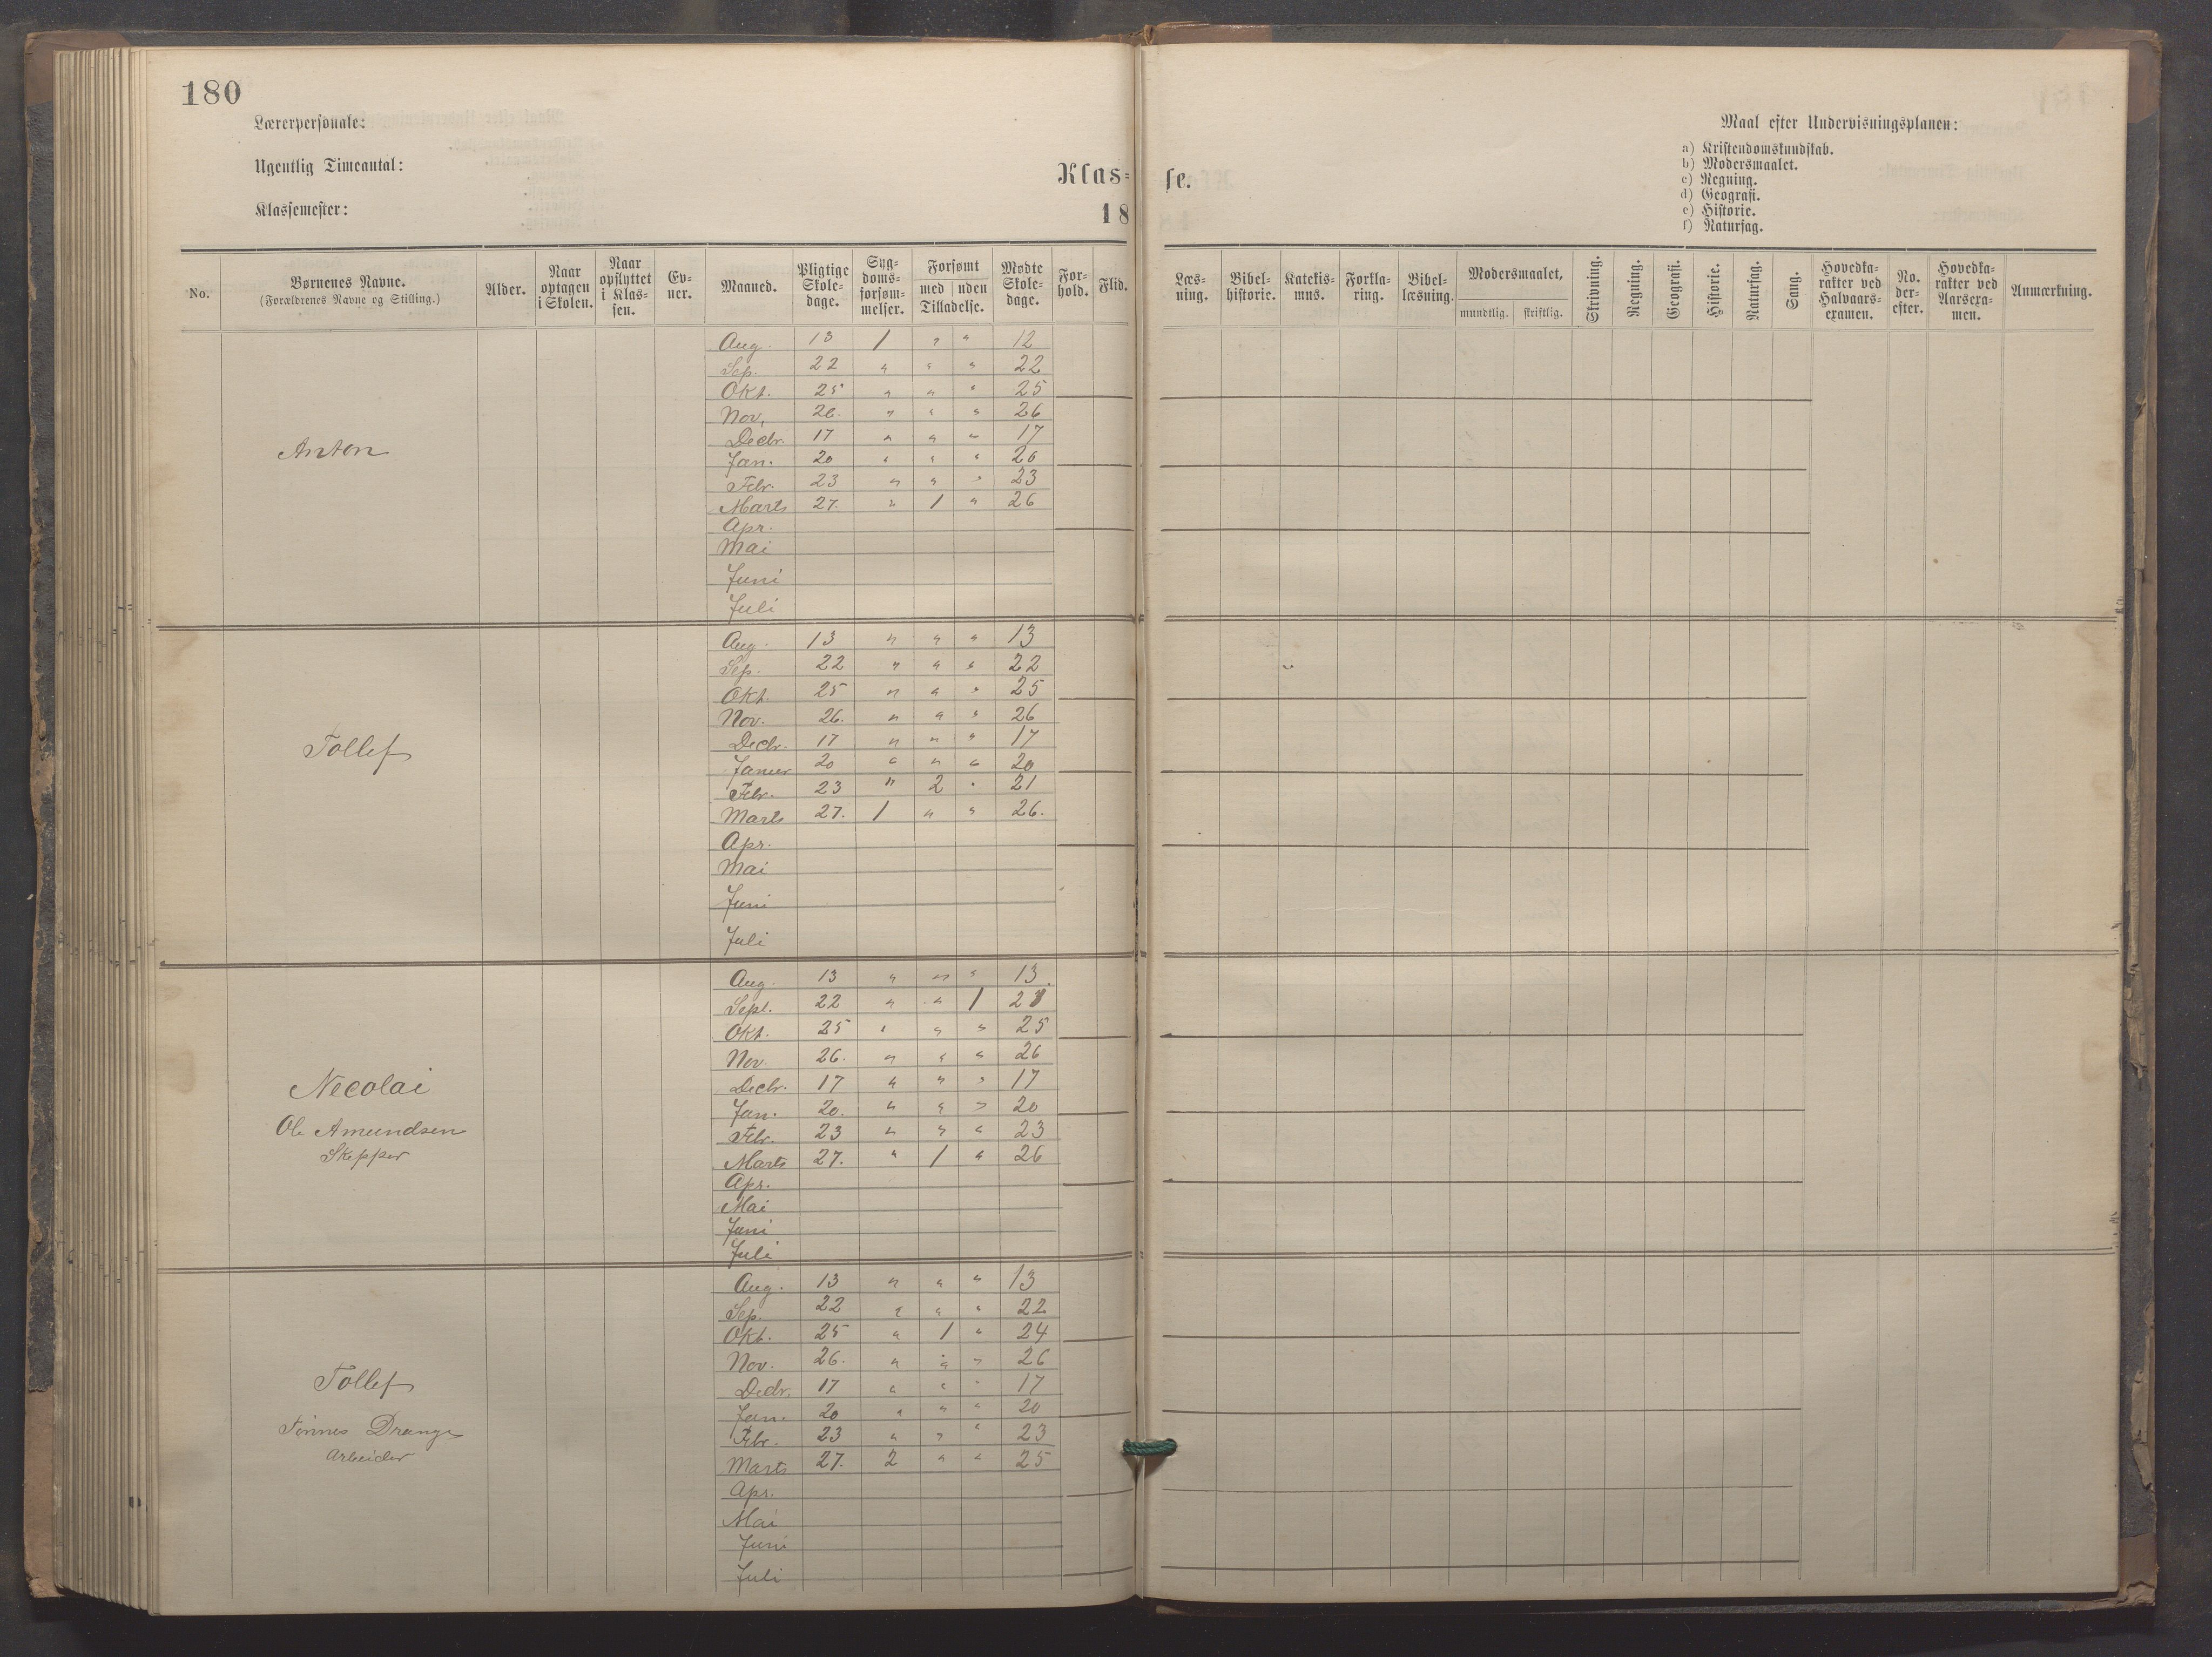 180
Lærerpersonale:
Ugentlig Timeantal:
Klassemester:
Klas-
18
No.
Børnenes Navne.
(Forældrenes Navne og Stilling.)
Alder.
Naar optagen i Skolen.
Naar opflyttet i Klas-sen.
Ev-ner.
Maaned.
Pligtige Skole-dage.
Syg-doms-forsøm-melser.
Forsømt
med | uden
Tilladelse.
Mødte Skole-dage.
For-hold.
Flid.
Anton
Aug. 13 / " " 12
Sep. 22 " " " 22
Okt. 25 " " " 25
Nov. 26. " " " 26
Decbr. 17 " " " 17
Jan. 20 " " " 20
Febr. 23 " " " 23
Marts 27. " / " 26
Apr.
Mai
Juni
Juli
Tollef
Aug. 13 " " " 13
Sep. 22 " " " 22
Okt. 25 " " " 25
Nov. 26. " " " 26
Decbr. 17 " " " 17
Januar 20 " " " 20
Febr. 23 " 2 " 21
Marts 27. / " " 26.
Apr.
Mai
Juni
Juli
Necolai
Ole Amundsen
Skepper
Aug. 13 " " " 13.
Sept. 22 " " / 21
Okt. 25 " " " 25
Nov. 26. " " " 26
Decbr. 17 " " " 17
Jan. 20. " " " 20
Febr. 23 " " " 23
Marts 27. " / " 26
Apr.
Mai
Juni
Juli
Tollef
Tønnes Drange
Arbeider
Aug. 13 " " " 13
Sep. 22 " " " 22
Okt. 25 " / " 24
Nov. 26. " " " 26
Decbr. 17 " " " 17
Jan. 20 " " " 20
Febr. 23 " " " 23
Marts 27. 2 " " 25
Apr.
Mai
Juni
Juli
se.
Maal efter Undervisningsplanen:
a) Kristendomskundskab.
b) Modersmaalet.
c) Regning.
d) Geografi.
e) Historie.
f) Naturfag.
Læs-ning.
Bibel-historie.
Katekis-mus.
Forkla-ring.
Bibel-læsning.
Modersmaalet.
mundtlig. | skriftlig.
Skrivning.
Regning.
Geografi.
Historie.
Naturfag.
Sang.
Hovedka-rakter ved Halvaars-examen.
No. der-efter.
Hovedka-rakter ved Aarsexa-men.
Anmærkning.